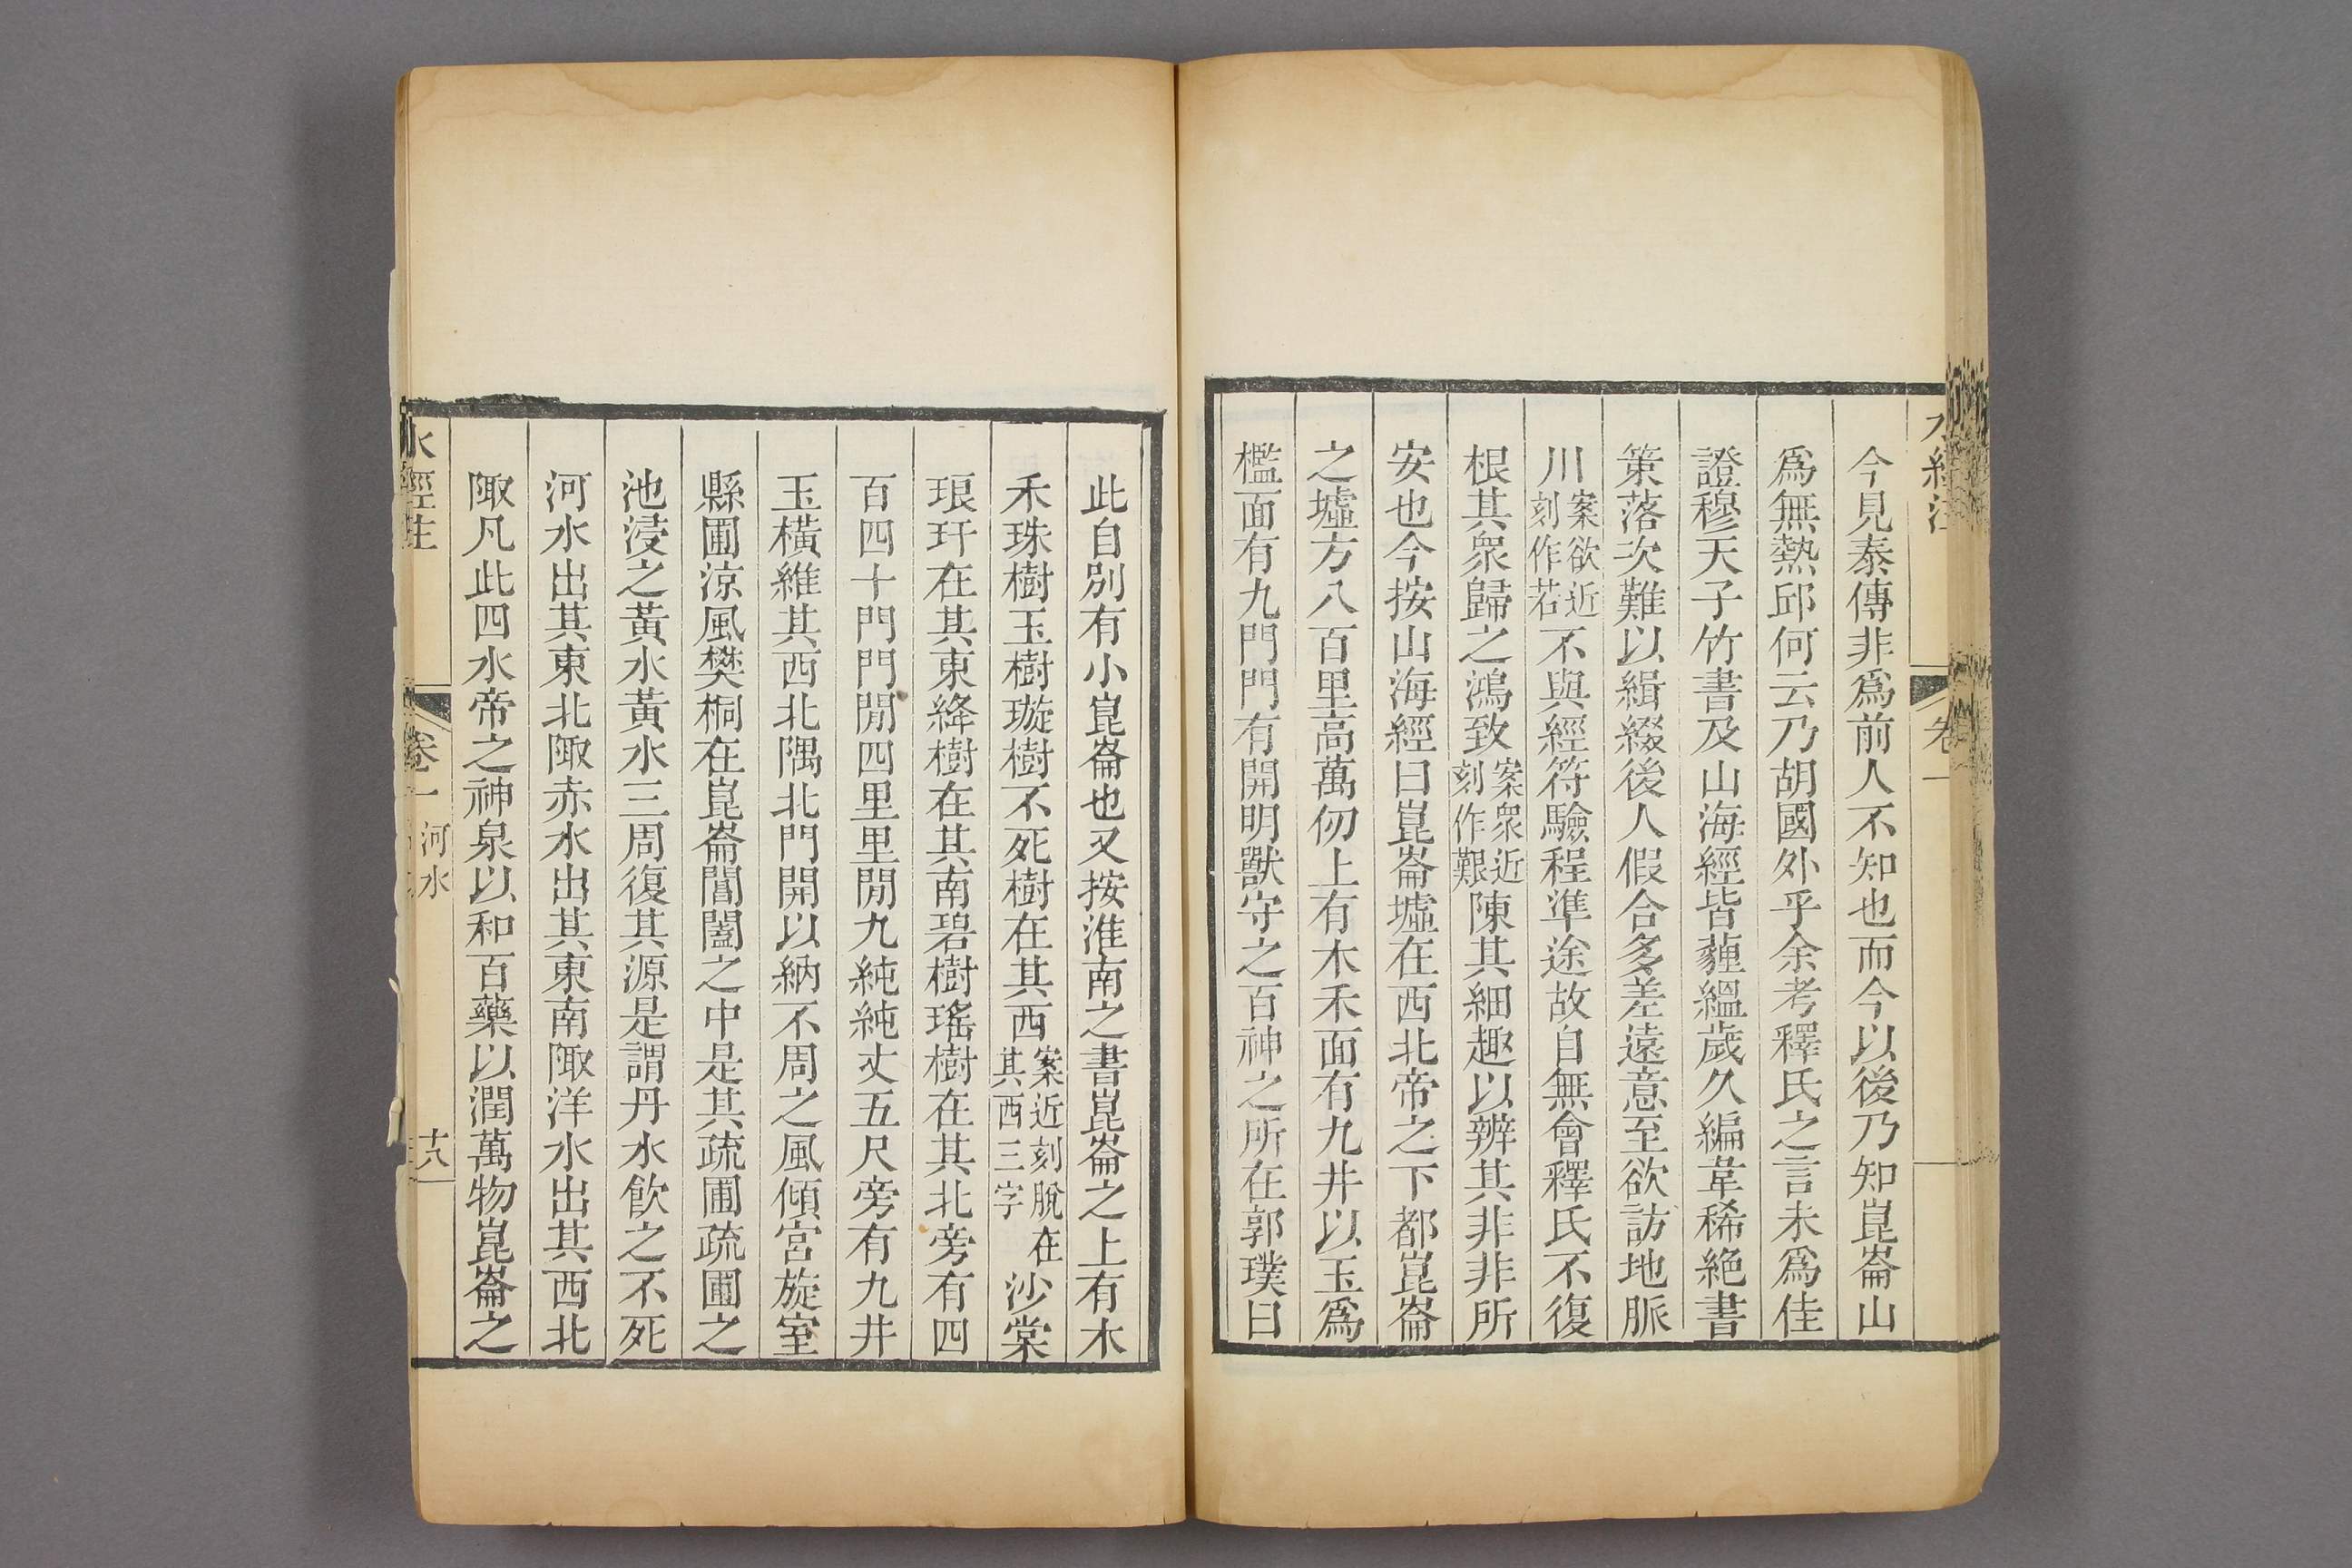 今見泰傳非爲前人不知也而今以後乃知崑崙山
爲無熱邱何云乃胡國外乎余考釋氏之言未爲佳
證穆天子竹書及山海經皆薶緼歲久編韋稀絶書
策落次難以緝綴後人假合多差遠意至欲訪地脈
川案欲近刻作若不與經符驗程準途故自無會釋氏不復
根其衆歸之鴻致案衆近刻作艱陳其細趣以辨其非非所
安也今按山海經曰崑崙墟在西北帝之下都崑崙
之墟方八百里高萬仞上有木禾面有九井以玉爲
檻面有九門門有開明獸守之百神之所在郭璞曰
此自別有小崑崙也又按淮南之書崑崙之上有木
禾珠樹玉樹璇樹不死樹在其西案近刻脫在其西三字沙棠
琅玕在其東絳樹在其南碧樹瑤樹在其北旁有四
百四十門門閒四里里閒九純純丈五尺旁有九井
玉橫維其西北隅北門開以納不周之風傾宮旋室
縣圃涼風樊桐在崑崙閶闔之中是其疏圃疏圃之
池浸之黃水黃水三周復其源是謂丹水飮之不死
河水出其東北陬赤水出其東南陬洋水出其西北
陬凡此四水帝之神泉以和百藥以潤萬物崑崙之
水經注
卷一
河水
十八
水經注
卷一